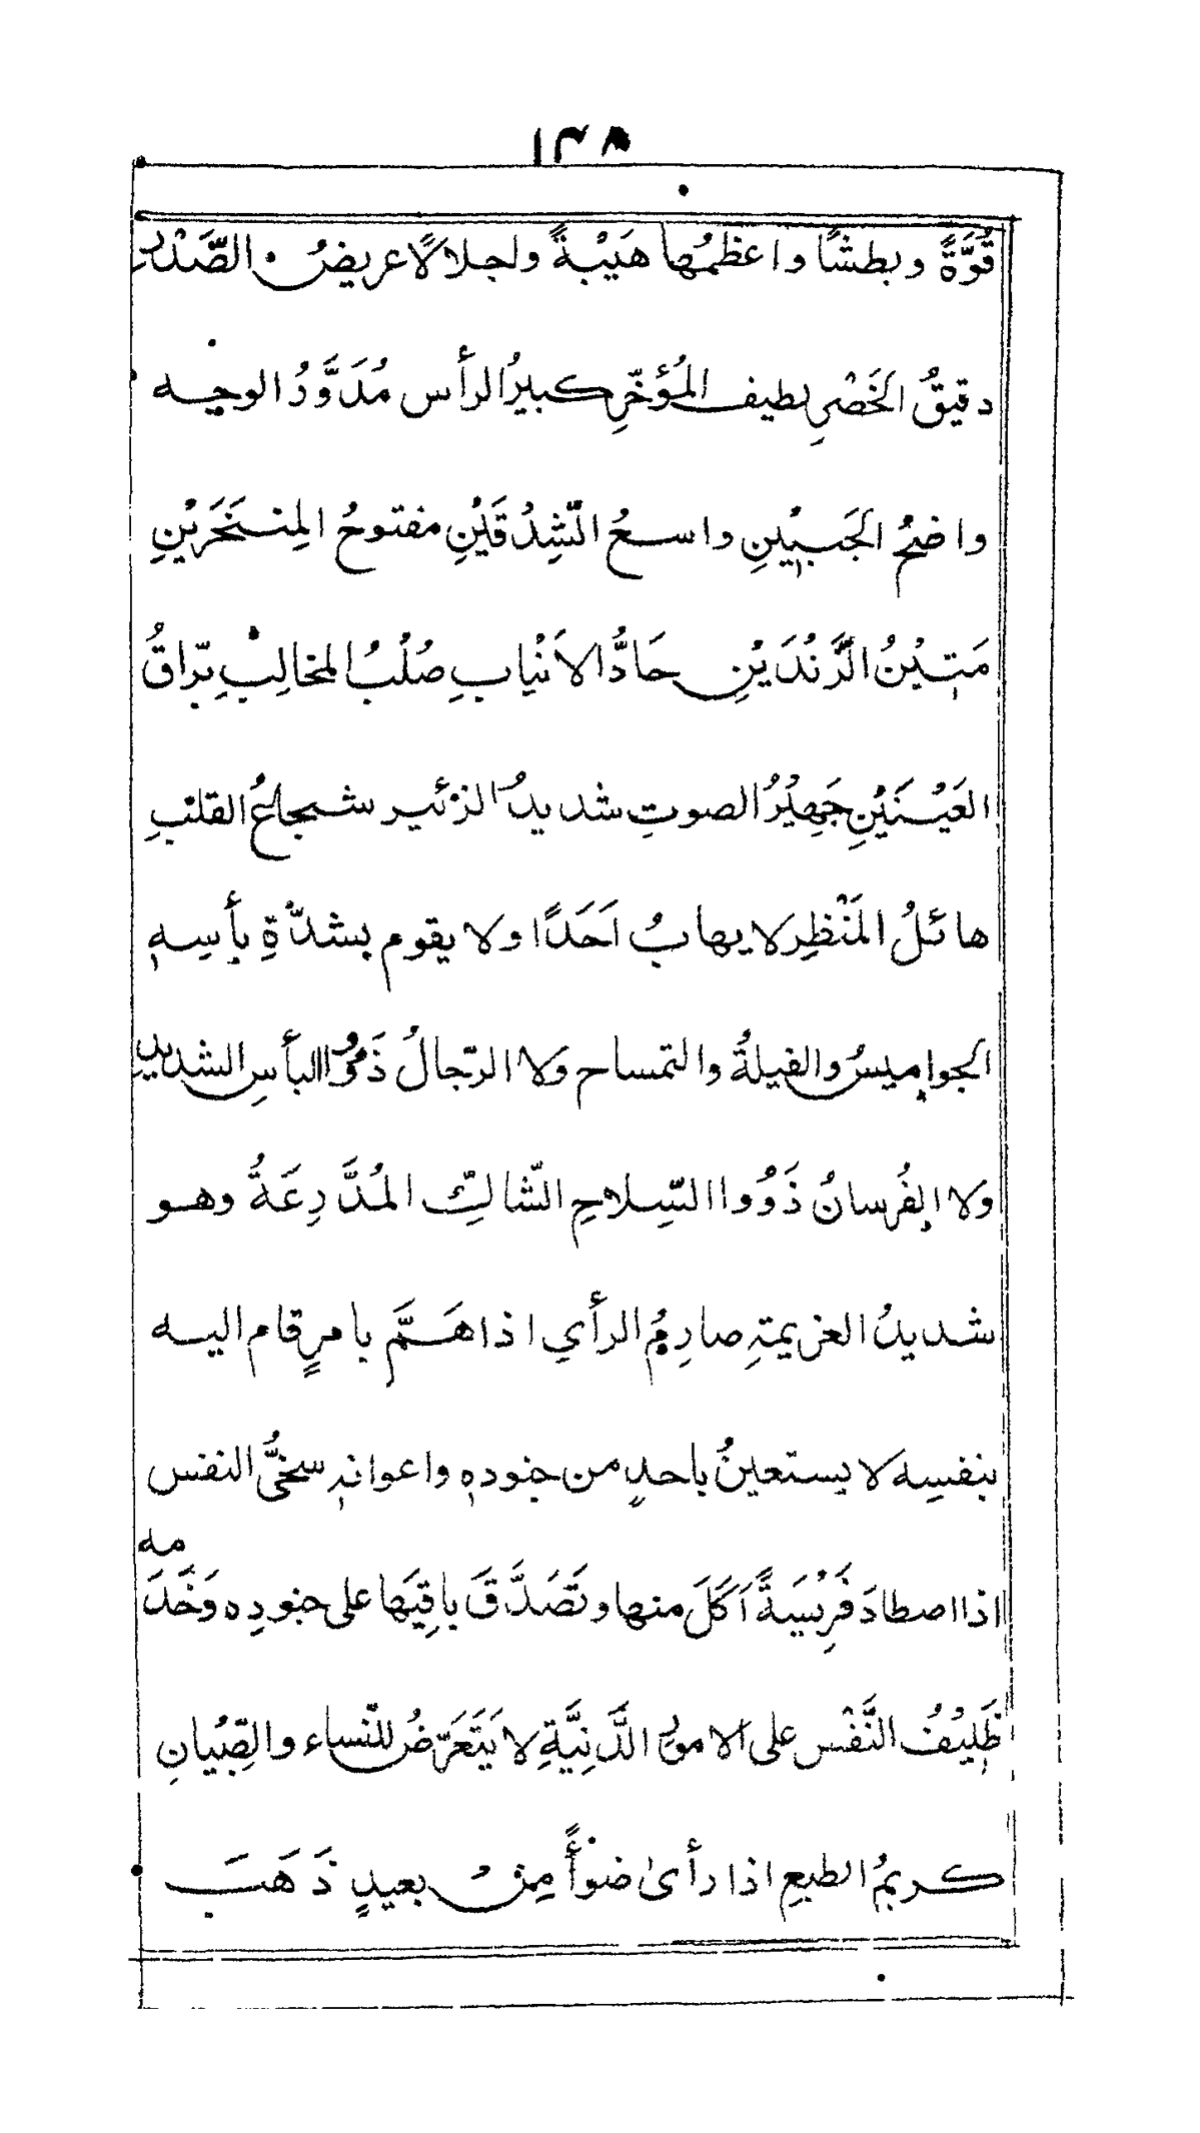 ١٣٨
قُوَّةً وبطشًا واعظمُها هَيْبةً واجلالًا عريضُ الصَّدْرِ
دقيقُ الخَصْرِ لطيف المُؤخّرِ كبيرُ الرأس مُدَوَّرُ الوجه
واضحُ الجَبِيْنِ واسعُ الشِّدْقَيْنِ مفتوحُ المِنْخَرَيْنِ
مَتِيْنُ الزَّنْدَيْنِ حَادُّ الاَنْيابِ صُلْبُ المخالِبِ برّاقُ
العَيْنَيْنِ جَهِيْرُ الصوتِ شديدُ الزئير شجاعُ القلبِ
هائلُ المَنْظِرِ لا يهابُ اَحَدًا ولا يقوم بشدّةِ بأسِهِ
الجواميسُ والفيلةُ والتمساح ولا الرّجالُ ذَوُوا البأسِ الشديدِ
ولا الفُرسانُ ذَوُوا السِّلاحِ الشّاكِّ المُدَّرِعَةُ وهو
شديدُ العزيمةِ صارِمُ الرأي اذا هَمَّ بامرٍ قام اليه
بنفسِه لا يستعينُ باحدٍ من جنودهِ واعوانهِ سخيُّ النفس
اذا اصطادَ فَرِيْسَةً اَكَلَ منها وتَصَدَّقَ باقِيَها على جنودِه وَخَدَمه
ظَلِيْفُ النَّفْسِ على الامورِ الدَّنِيَّةِ لا يَتَعَرَّضُ للنّساء والصِّبْيانِ
كريمُ الطبعِ اذا رأىٰ ضَوْأً مِنْ بعيدٍ ذَهَبَ